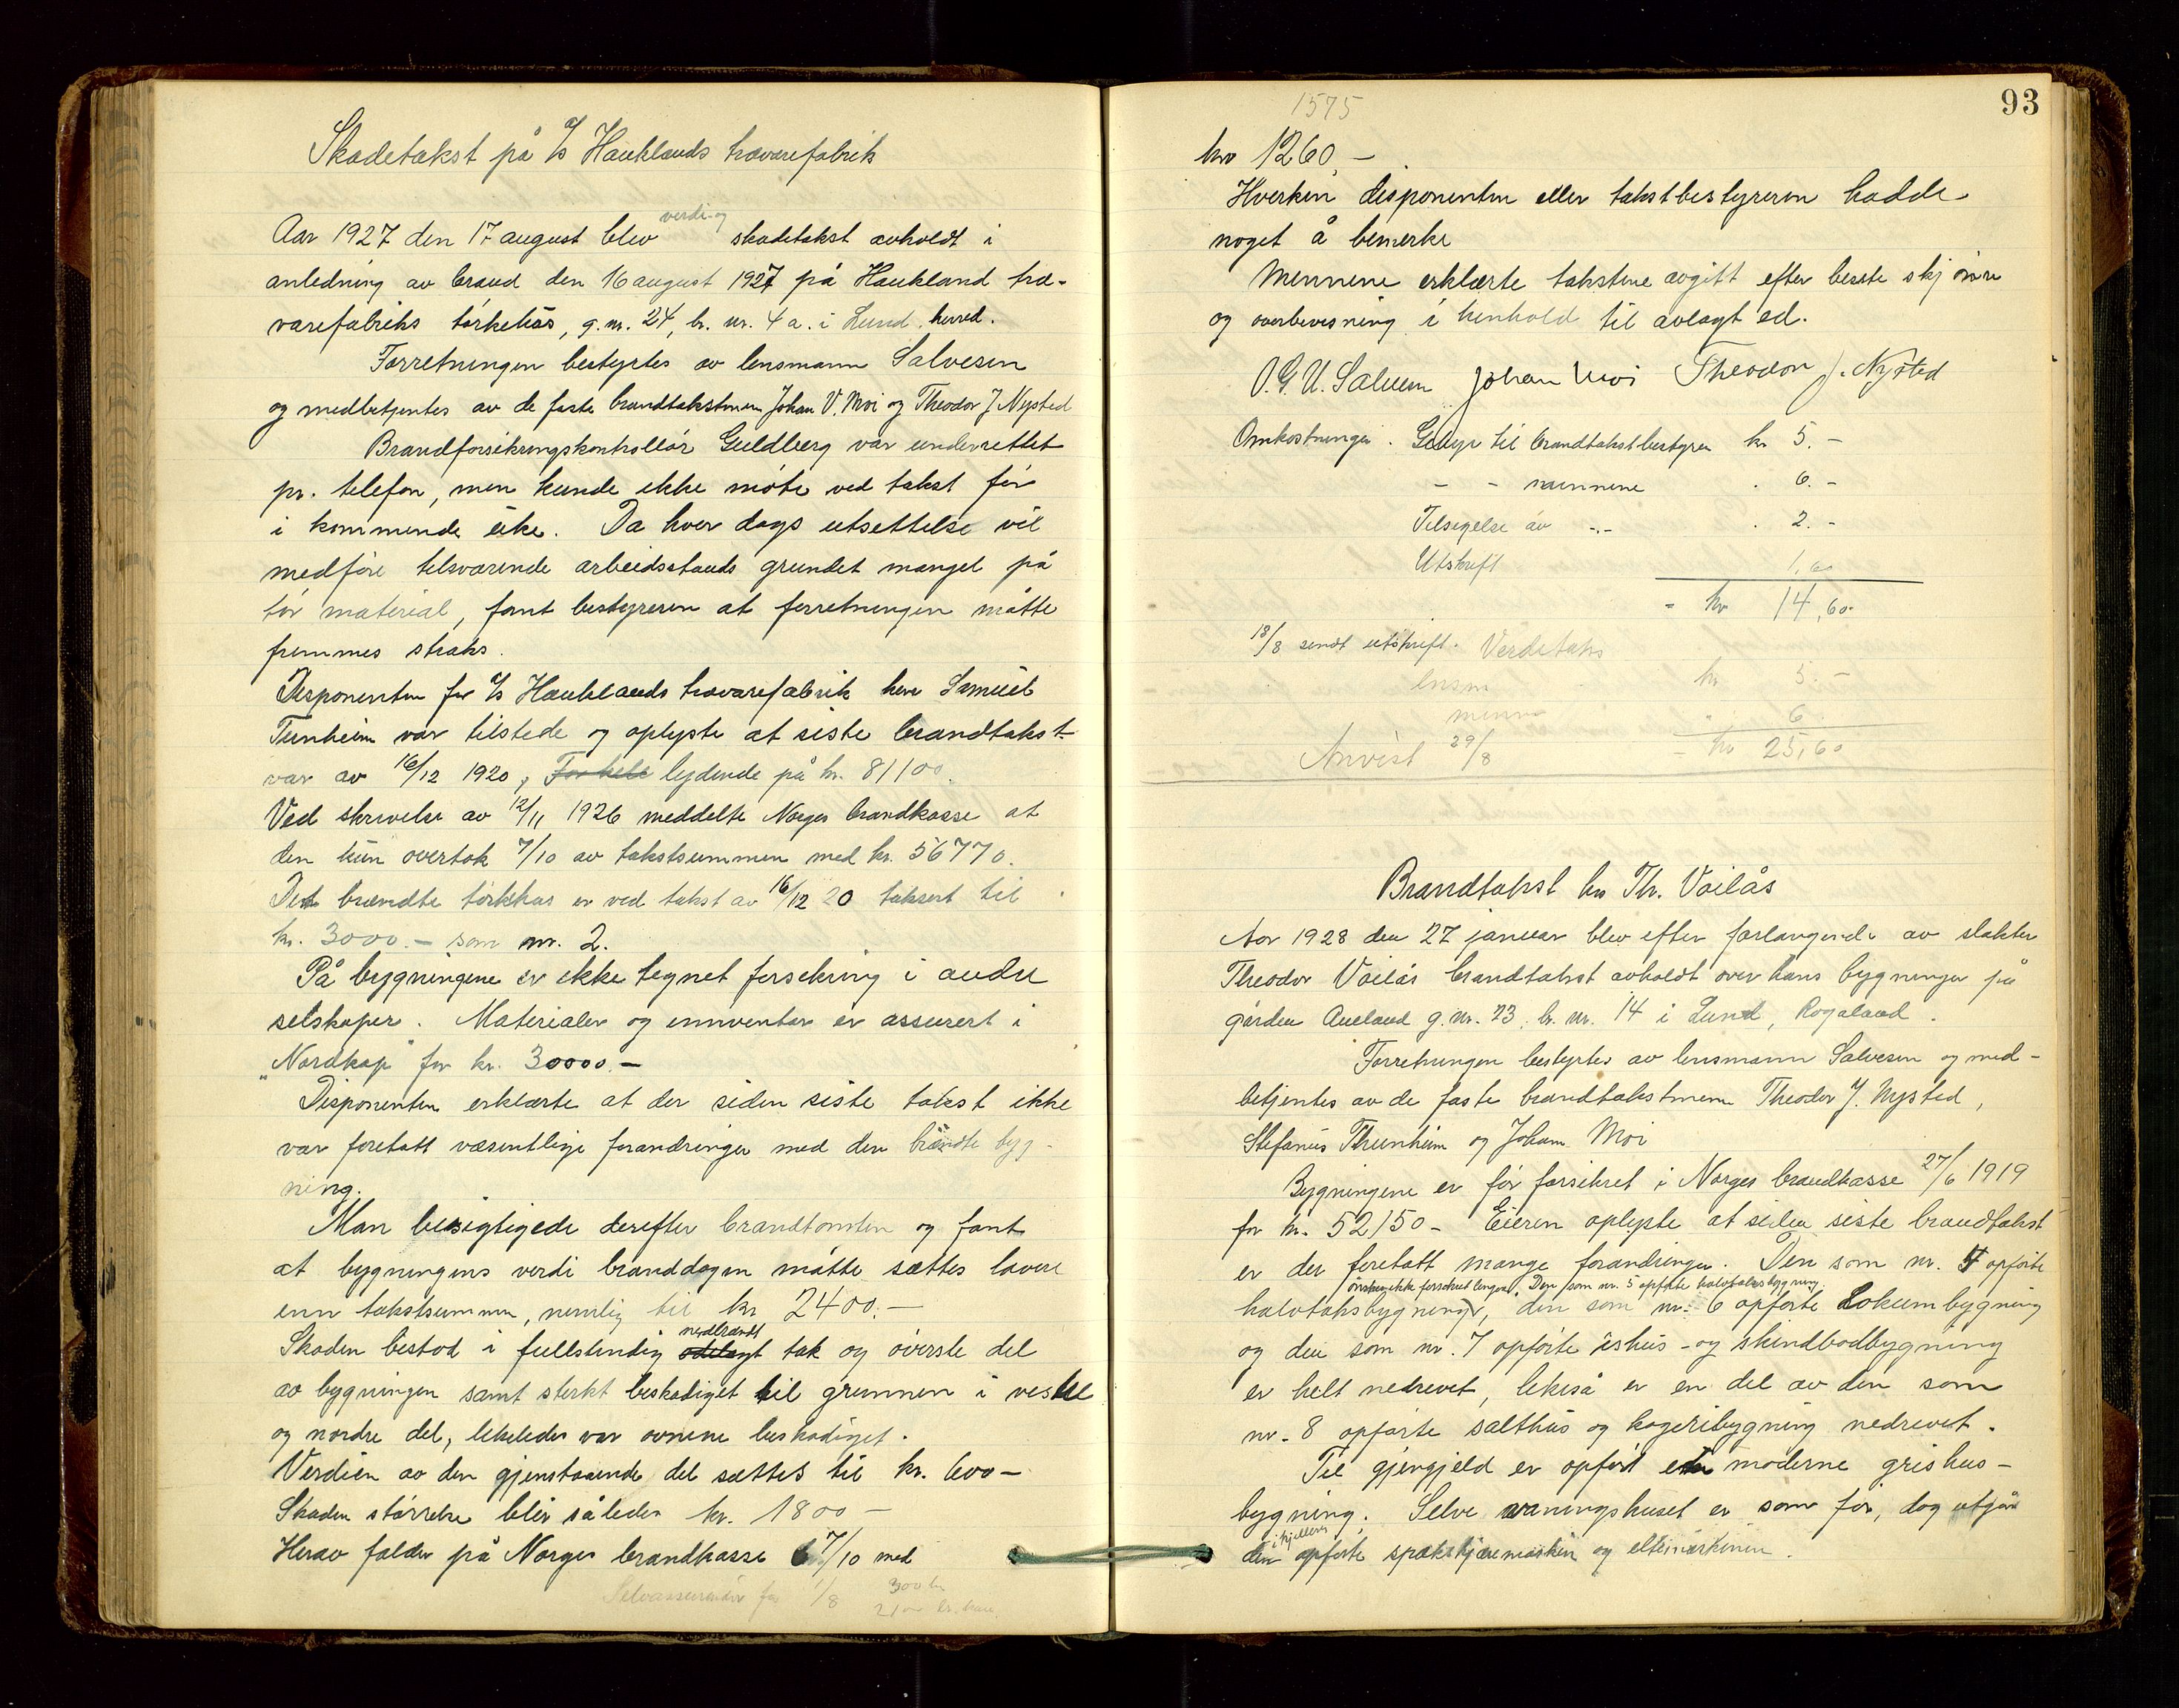 Skadetakst på A/S Hauklands trævarefabrik
verdi og
Aar 1927 den 17 august blev skadetakst avholdt i
anledning av brand den 16 august 1927 på Haukland træ-
varefabriks tørkehus, g. nr. 24, br. nr. 4 a. i Lund herred.
Forretningen bestyrtes av lensmann Salvesen
og medbetjentes av de faste brandtakstmenn Johan V. Moi og Theodor J Nysted
Brandforsikringskontrollør Guldberg var underrettet
pr. telefon, men kunde ikke møte ved takst før
i kommende uke. Da hver dags utsettelse vil
medføre tilsvarende arbeidsstands grundet mangel på
tør material, fant bestyreren at forretningen måtte
fremmes straks.
Disponenten for A/S Hauklands trævarefabrik herr Samuel
Tunheim var tilstede og oplyste at siste brandtakst
var av 16/12 1920, lydende på kr. 81100.
Ved skrivelse av 12/11 1926 meddelte Norges brandkasse at
den kun overtok 7/10 av takstsummen med kr. 56770.
Det brændte tørkhus er ved takst av 16/12 20 taksert til
kr. 3000.- som nr. 2.
På bygningene er ikke tegnet forsikring i andre
selskaper. Materialer og innventar er assurert i
"Nordkap" for kr. 30000.-
Disponenten erklærte at der siden siste takst ikke
var foretatt væsentlige forandringer med den brændte byg-
ning.
Man besigtigede derefter brandtomten og fant
at bygningens verdi branddagen måtte sættes lavere
enn takstsummen, nemlig til kr 2400.-
nedbrændt
Skaden bestod i fullstendig ødelagt tak og øverste del
av bygningen samt sterkt beskadiget til grunnen i vestre
og nordre del, likeledes var ovnene beskadiget.
Verdien av den gjenstaaende del sættes til kr. 600-
Skaden størrelse blir således kr. 1800-
Herav falder på Norges brandkasse 7/10 med
Selvassurandør for 1/8 300 kr
2100
93
1575
kr 1260,-
Hverken disponenten eller takstbestyreren hadde
noget å bemerke
Mennene erklærte takstene avgitt efter beste skjønn
og overbevisning i henhold til avlagt ed.
O.G.U. Salvesen Johan Moi Theodor J. Nysted
Omkostninger. Gebyr til brandtakstbestyrer kr 5.-
- - mennene . 6.-
Tilsigelse av -.- . 2.-
Utskrift 1,60
= kr 14,60.
18/8 sendt utskrift. Verditaks
lensm kr 5.-
menn " 6.
Anvist 29/8 = kr 25,60
Brandtakst hos Th. Voilås
Aar 1928 den 27 januar blev efter forlangende av slakter
Theodor Voilås brandtakst avholdt over hans bygninger på
gården Aueland g. nr. 23, br. nr. 14 i Lund, Rogaland.
Forretningen bestyrtes av lensmann Salvesen og med-
betjentes av de faste brandtakstmenn Theodor J. Nysted,
Stefanus Thunheim og Johan Moi
Bygningene er før forsikret i Norges brandkasse 27/6 1919
for kr. 52150- Eieren oplyste at siden siste brandtakst
er der foretatt mange forandringer. Den som nr. 4 opførte
ønskes ikke forsikret lenger. Den som nr. 5 opførte halvtaksbygning
halvtaksbygning, den som nr. 6 opførte Lokumbygning
og den som nr. 7 opførte ishus- og skindbodbygning
er helt nedrevet, likeså er en del av den som
nr. 8 opførte salthus og kogeribygning nedrevet.
Til gjengjeld er opført en moderne grishus-
bygning. Selve vaningshuset er som før, dog utgår
i kjelleren
den opførte spækskjæremaskin og eltemaskinen.